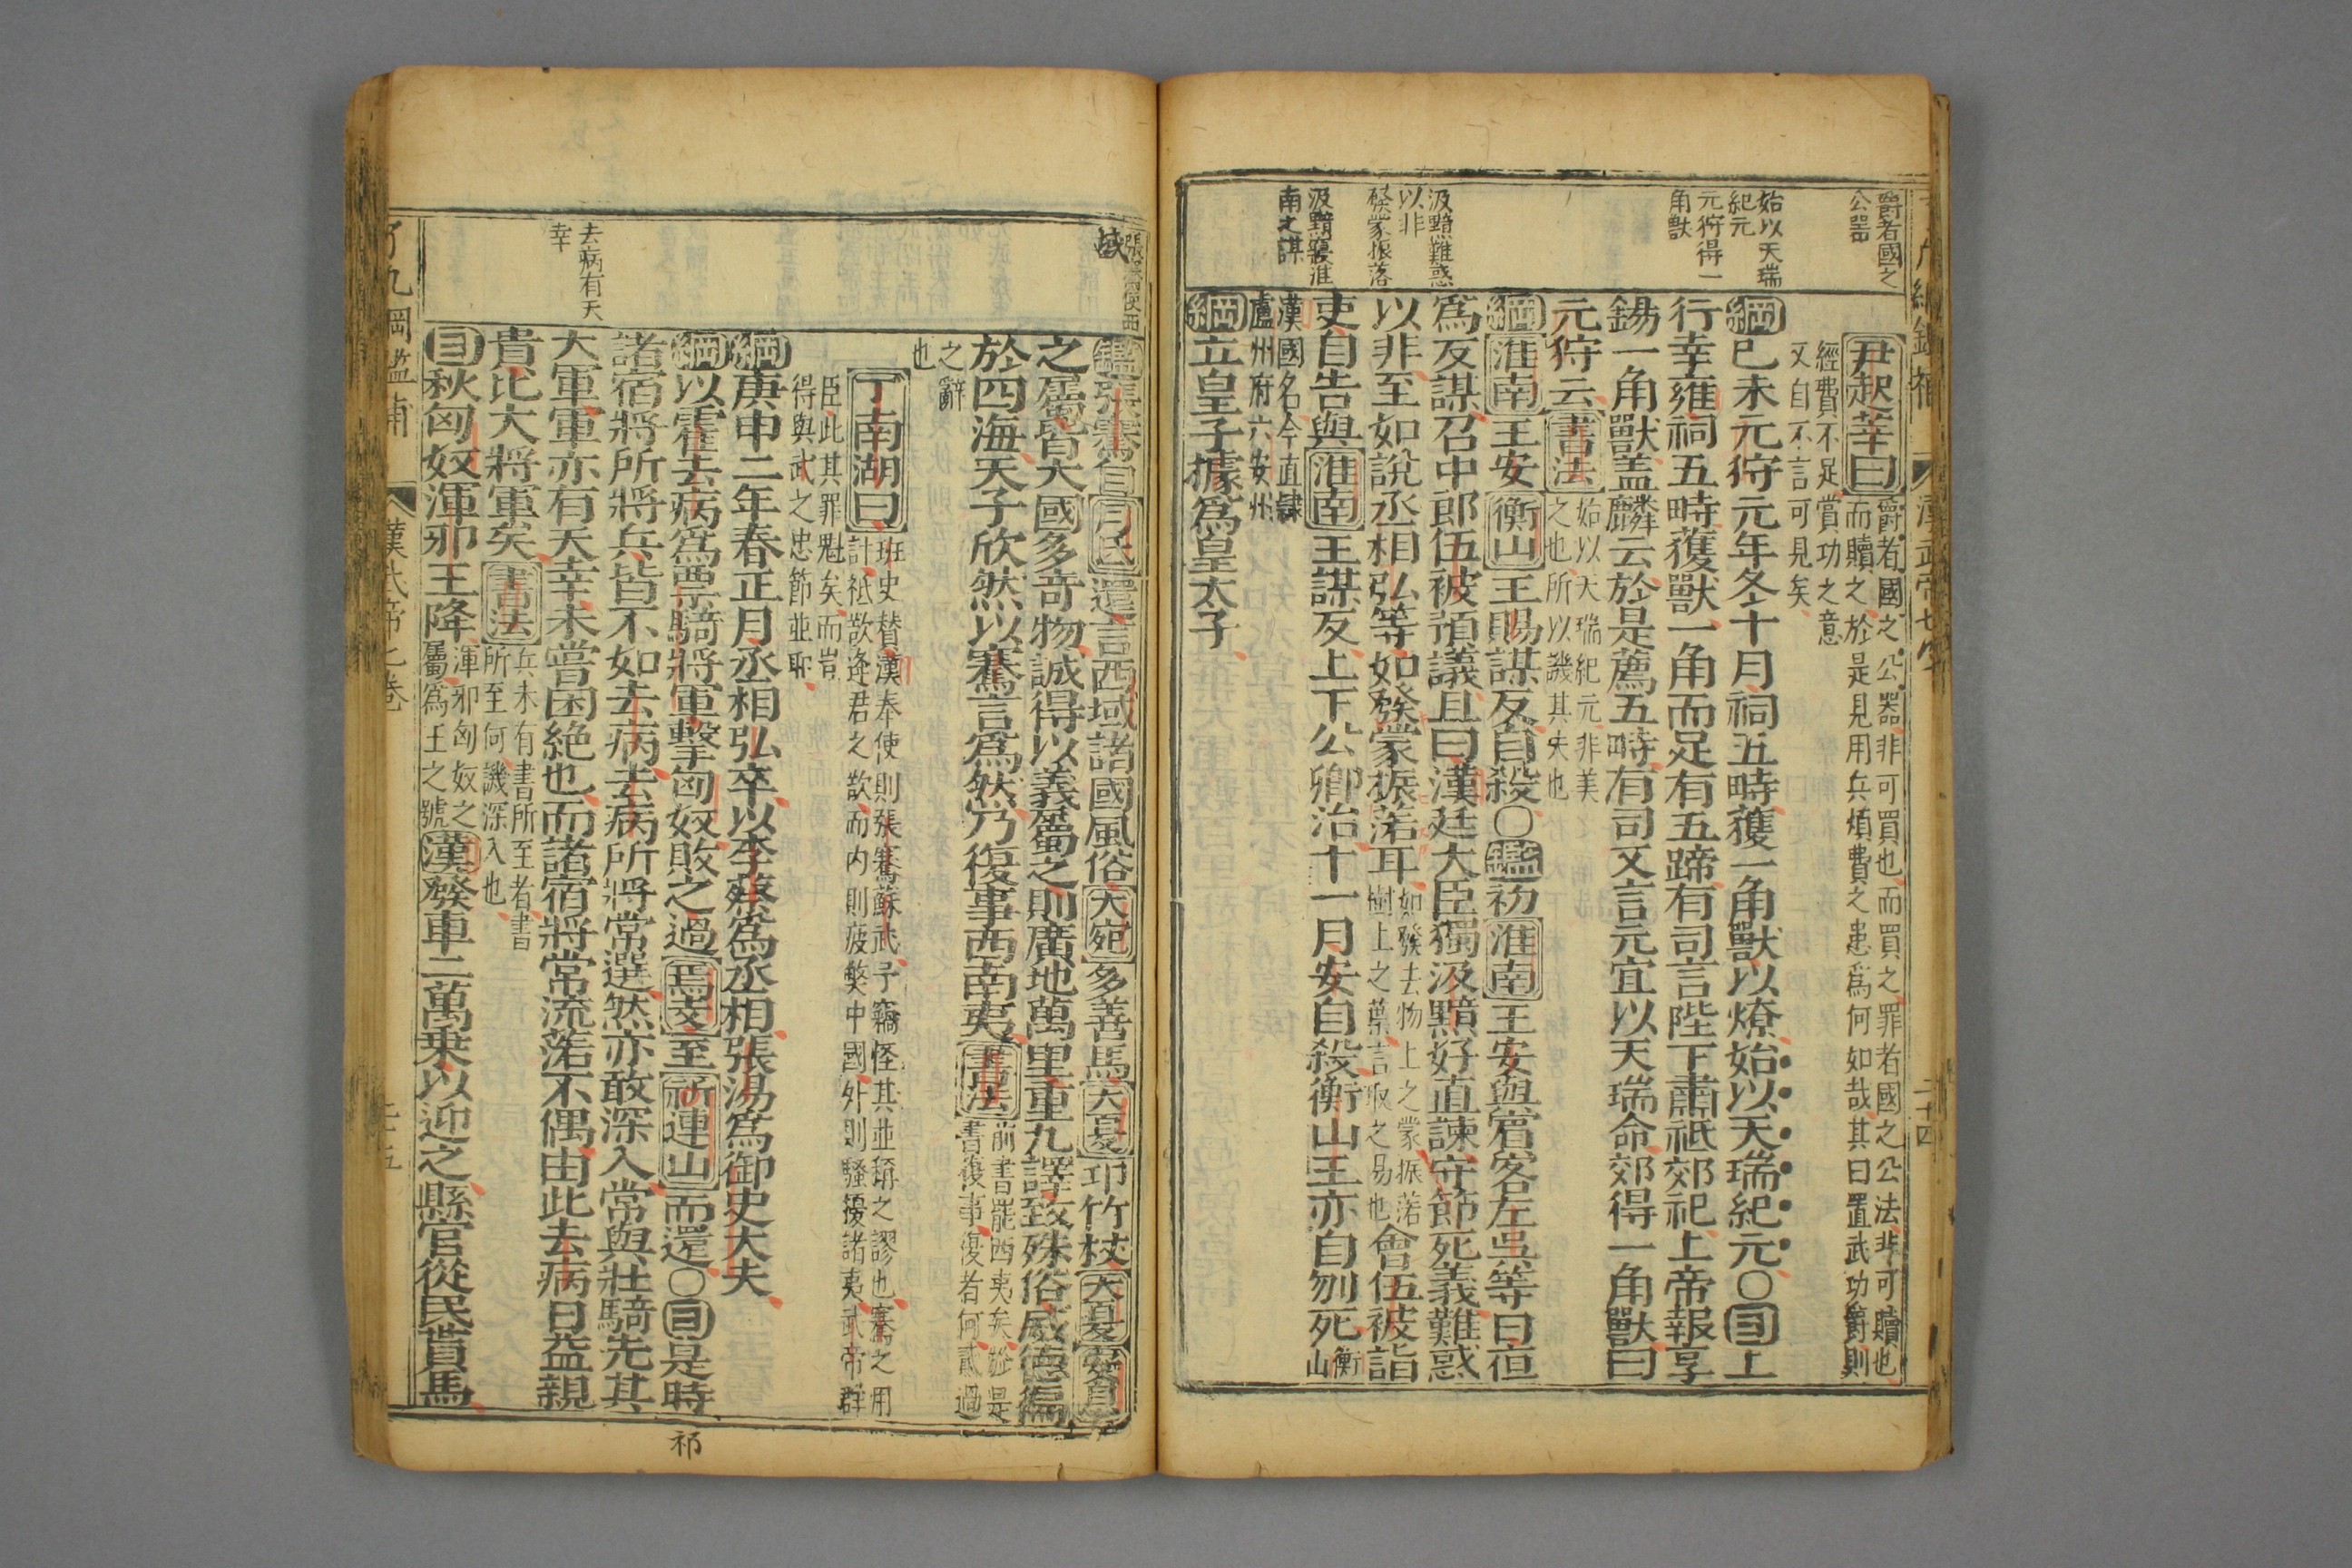 爵者國之
公器
始以天瑞
紀元
元狩得一
角獸
汲黯難惑
以非
發蒙振落
汲黯寢淮
南之謀
尹起莘曰
爵者國之公器非可買也而買之罪者國之公法非可贖也
而贖之於是見用兵煩費之患爲何如哉其曰置武功爵則
經費不足賞功之意
又自不言可見矣
綱己未元狩元年冬十月祠五畤獲一角獸以燎始以天瑞紀元○目上
行幸雍祠五畤獲獸一角而足有五蹄有司言陛下肅祗郊祀上帝報享
錫一角獸盖麟云於是薦五畤有司又言元宜以天瑞命郊得一角獸曰
元狩云書法
始以天瑞紀元非美
之也所以譏其失也
綱淮南王安衡山王賜謀反自殺○鑑初淮南王安與賓客左吳等日夜
爲反謀召中郎伍被預議且曰漢廷大臣獨汲黯好直諫守節死義難惑
以非至如說丞相弘等如發蒙振落耳
如發去物上之蒙振落
樹上之葉言取之易也
會伍被詣
吏自告與淮南王謀反上下公卿治十一月安自殺衡山王亦自刎死
衡山
漢國名今直隸
廬州府六安州
綱立皇子據爲皇太子
漢武帝七卷
二十四
張騫使西
域
去病有天
幸
鑑張騫自月氏還言西域諸國風俗大宛多善馬大夏邛竹杖大夏
之屬皆大國多奇物誠得以義屬之則廣地萬里重九譯致殊俗威德徧
於四海天子欣然以騫言爲然乃復事西南夷書法
前書罷西夷矣於是
書復事復者何貳過
之辭
也
丁南湖曰
班史替漢奉使則張騫蘇武予竊怪其並稱之謬也騫之用
計祗欲逢君之欲而内則疲獘中國外則騷擾諸夷武帝群
臣此其罪魁矣而豈
得與武之忠節並耶
綱庚申二年春正月丞相弘卒以李蔡爲丞相張湯爲御史大夫
綱以霍去病爲票騎將軍擊匈奴敗之過焉支至祈連山而還○目是時
諸宿將所將兵皆不如去病去病所將常選然亦敢深入常與壯騎先其
大軍軍亦有天幸未嘗困絶也而諸宿將常流落不偶由此去病日益親
貴比大將軍矣書法
兵未有書所至者書
所至何譏深入也
目秋匈奴渾邪王降
渾邪匈奴之
屬爲王之號
漢發車二萬乘以迎之縣官從民貰馬
了凡綱鑑補
漢武帝七卷
二十五
祁